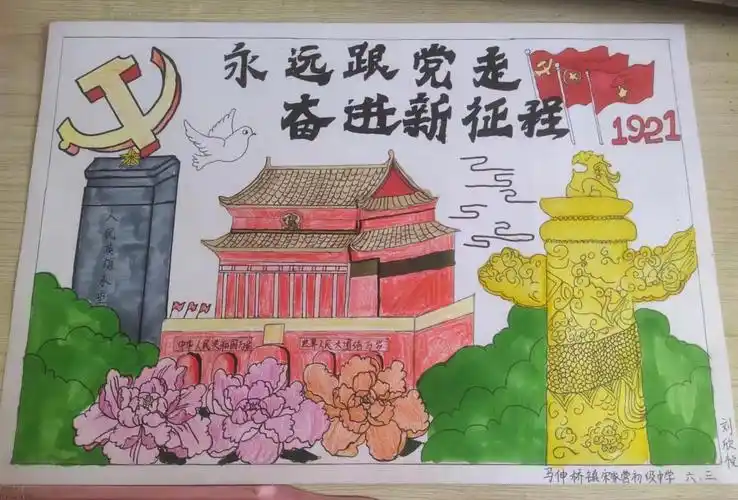 永远跟党走
奋进新征程
1921
人民英雄永垂
中华人民共和国万岁
世界人民大团结万岁
刘欣
马伸桥镇宋家营初级中学 六.三